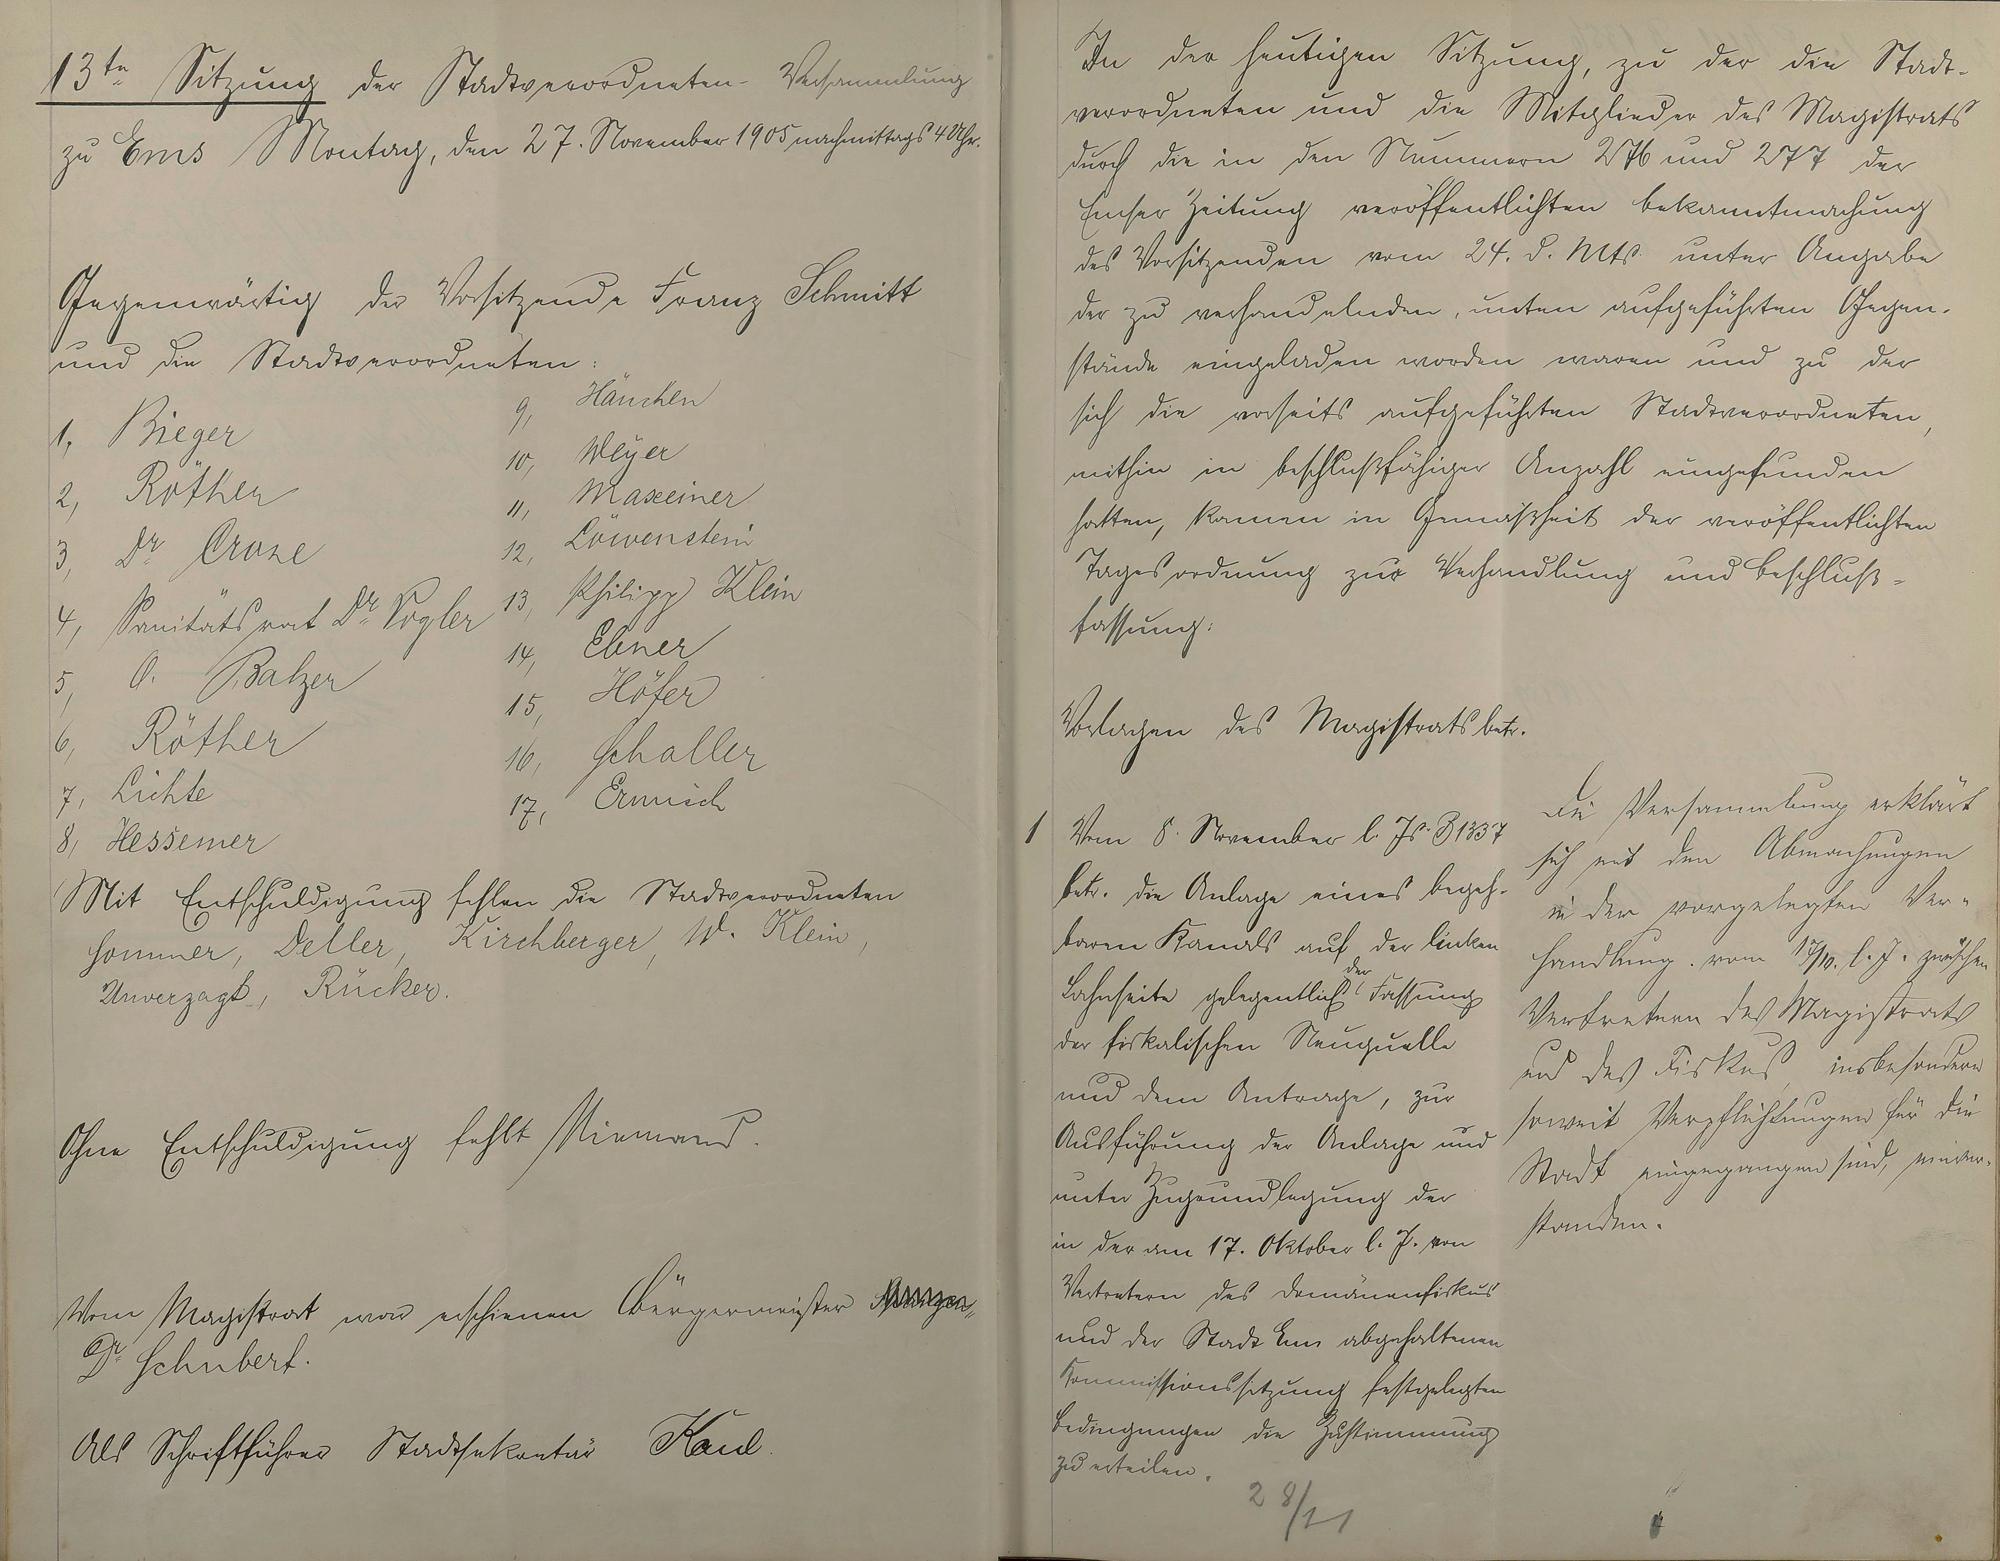 13te Sitzung der Stadtverordneten-Versammlung
zu Ems Montag, den 27. November 1905 nachmittags 4 Uhr.
Gegenwärtig der Vorsitzende Franz Schmitt
und die Stadtverordneten:
1, Bieger
2, Röther
3, Dr Crone
4, Sanitätsrat Dr Vogler
5, O. Balzer
6, Röther
7, Lichte
8, Hessemer
9, Hänchen
10, Weyer
11, Maxeiner
12, Löwenstein
13, Philipp Klein
14, Ebner
15, Höfer
16, Schaller
17, Ermisch
Mit Entschuldigung fehlen die Stadtverordneten
Sommer, Deller, Kirchberger, W. Klein,
Unverzagt, Rücker.
Ohne Entschuldigung fehlt Niemand.
Vom Magistrat war erschienen Bürgermeister
Dr Schubert.
Als Schriftführer Stadtsekretär Kaul.
In der heutigen Sitzung, zu der die Stadt-
verordneten und die Mitglieder des Magistrats
durch die in den Nummern 276 und 277 der
Emser Zeitung veröffentlichten Bekanntmachung
des Vorsitzenden vom 24. d. Mts. unter Angabe
der zu verhandelnden, unten aufgeführten Gegen-
stände eingeladen worden waren und zu der
sich die vorseits aufgeführten Stadtverordneten,
mithin in beschlußfähiger Anzahl eingefunden
hatten, kamen in Gemäßheit der veröffentlichten
Tagesordnung zur Verhandlung und Beschluß-
fassung:
Vorlagen des Magistrats betr.
1 Vom 8. November l. Js. B 1337
betr. die Anlage eines begeh-
baren Kanals auf der linken
Lahnseite gelegentlich der Fassung
der fiskalischen Neuquelle
und dem Antrage, zur
Ausführung der Anlage und
unter Zugrundlegung der
in der am 17. Oktober l. J. von
Vertretern des Domänenfiskus
und der Stadt Ems abgehaltenen
Kommissionssitzung festgelegten
Bedingungen die Zustimmung
zu erteilen.
28/11
Die Versammlung erklärt
sich mit den Abmachungen
in der vorgelegten Ver-
handlung vom 17/10. l. J. zwischen
Vertretern des Magistrats
und des Fiskus, insbesondere
soweit Verpflichtungen für die
Stadt eingegangen sind, einver-
standen.